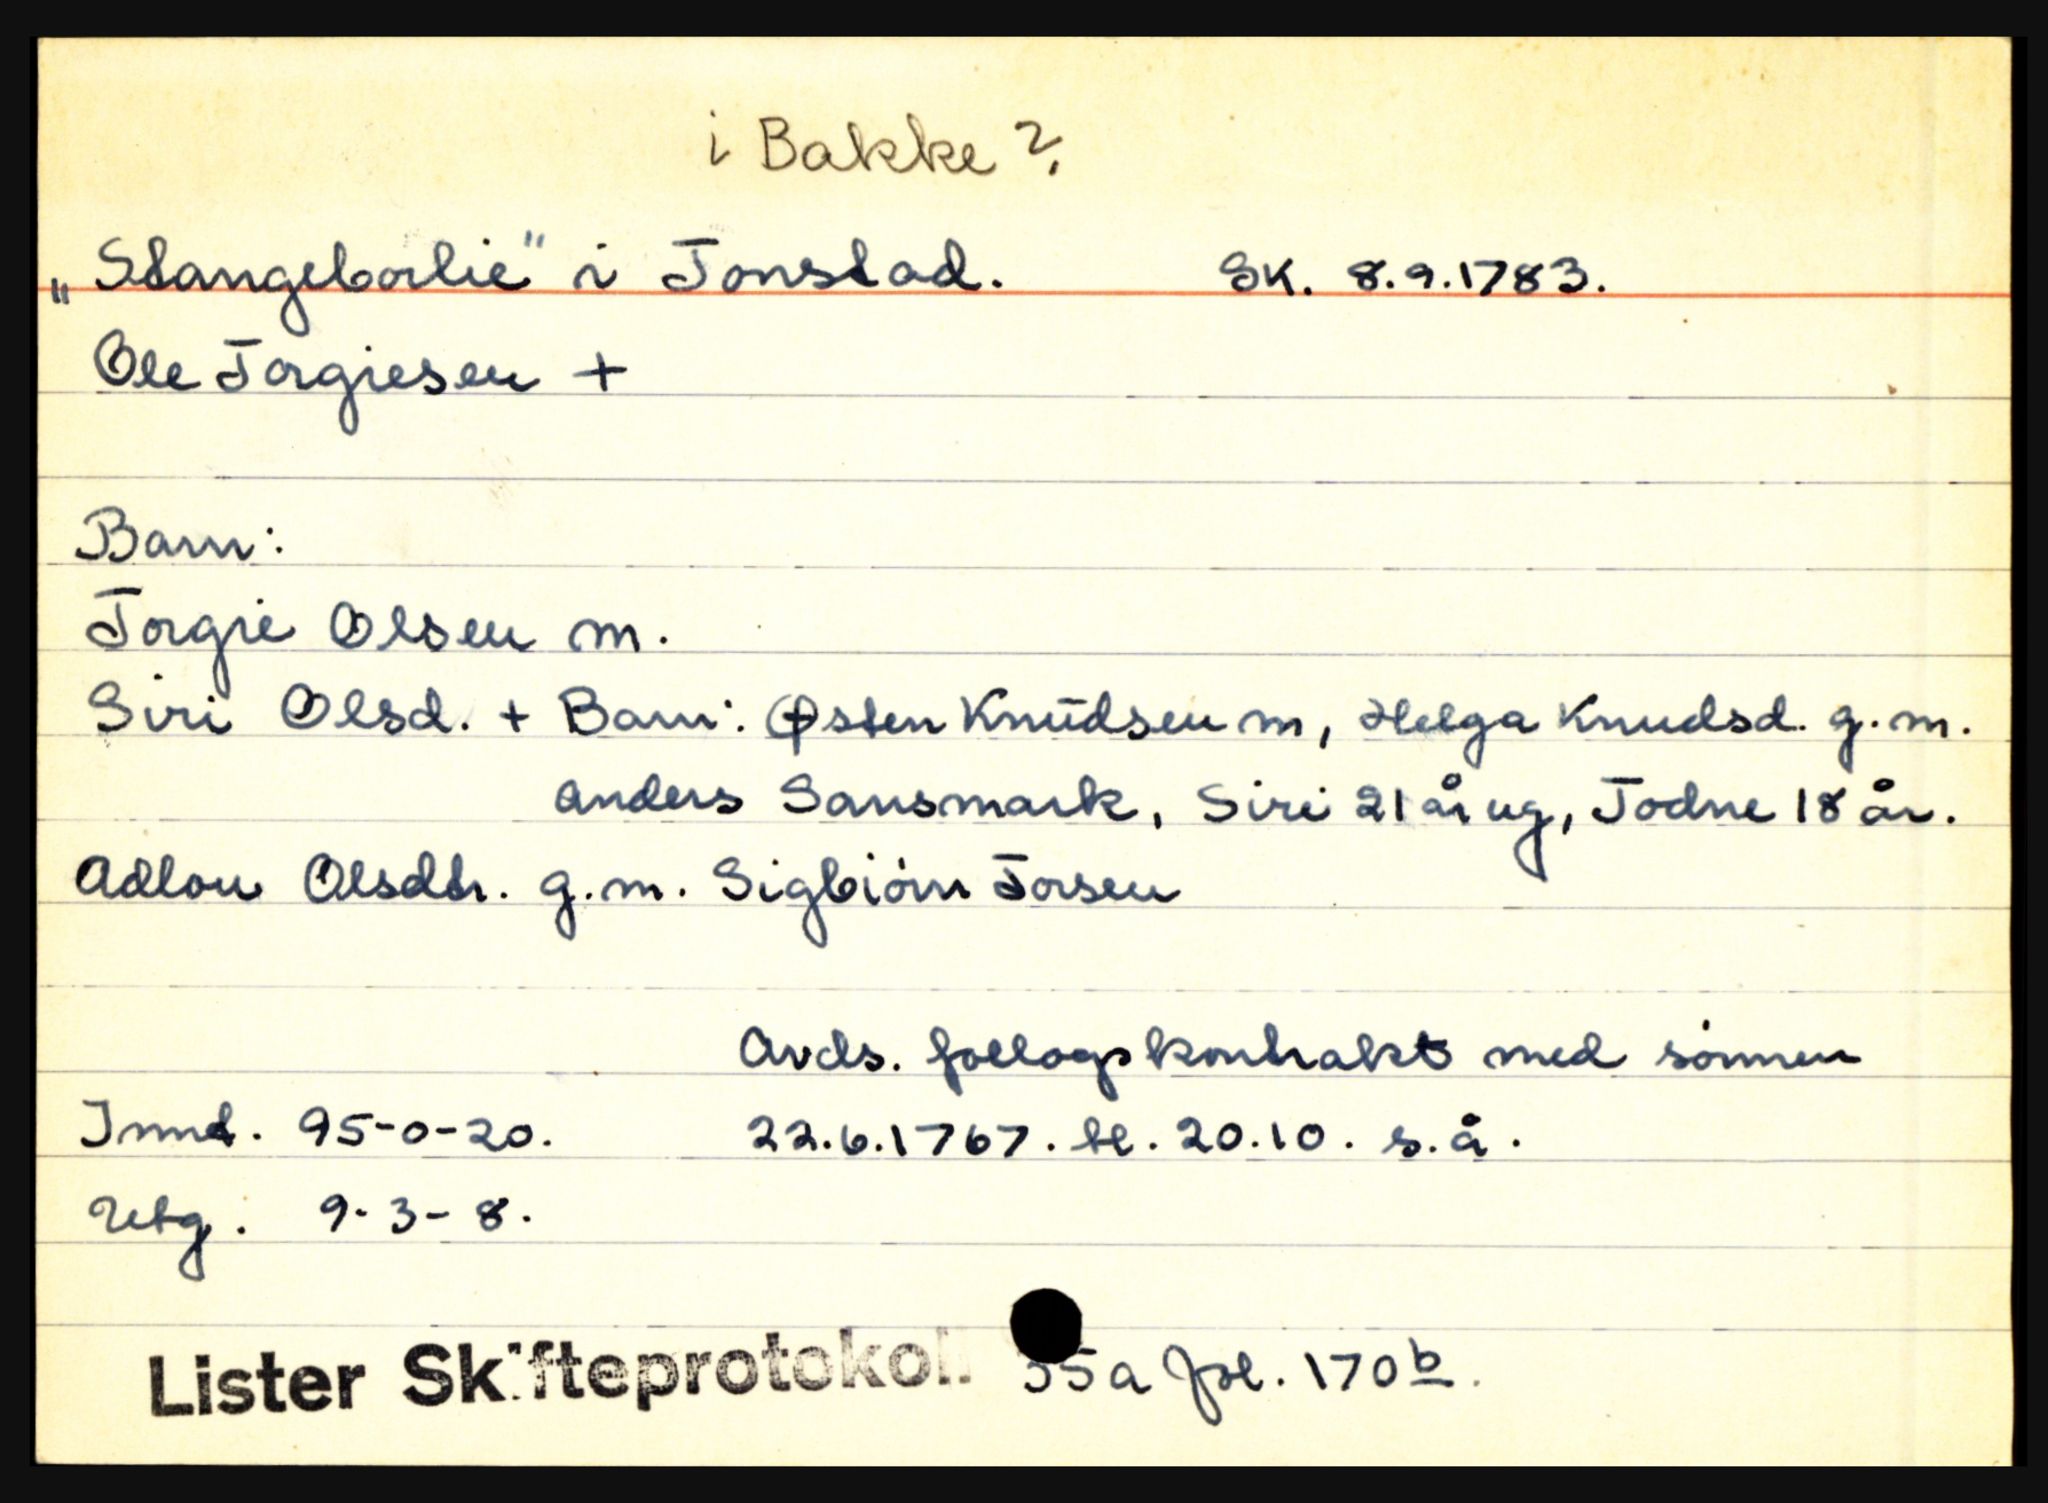 i Bakke ?
„Stangeborlie" i Tonstad. Sk. 8.9.1783.
Ole Torgiesen +
Barn:
Torgie Olsen m.
Siri Olsd. + Barn: Østen Knudsen m, Helga Knudsd. g.m.
Anders Sansmark, Siri 21 år ug, Todne 18 år.
Adlou Olsdtr. g.m. Sigbiørn Torsen
Avds. follogskontrakt med sønnen
Innt. 95-0-20. 22.6.1767. tl. 20.10. s.å.
Utg. 9-3-8.
Lister Skifteprotokoll 35a fol. 170b.